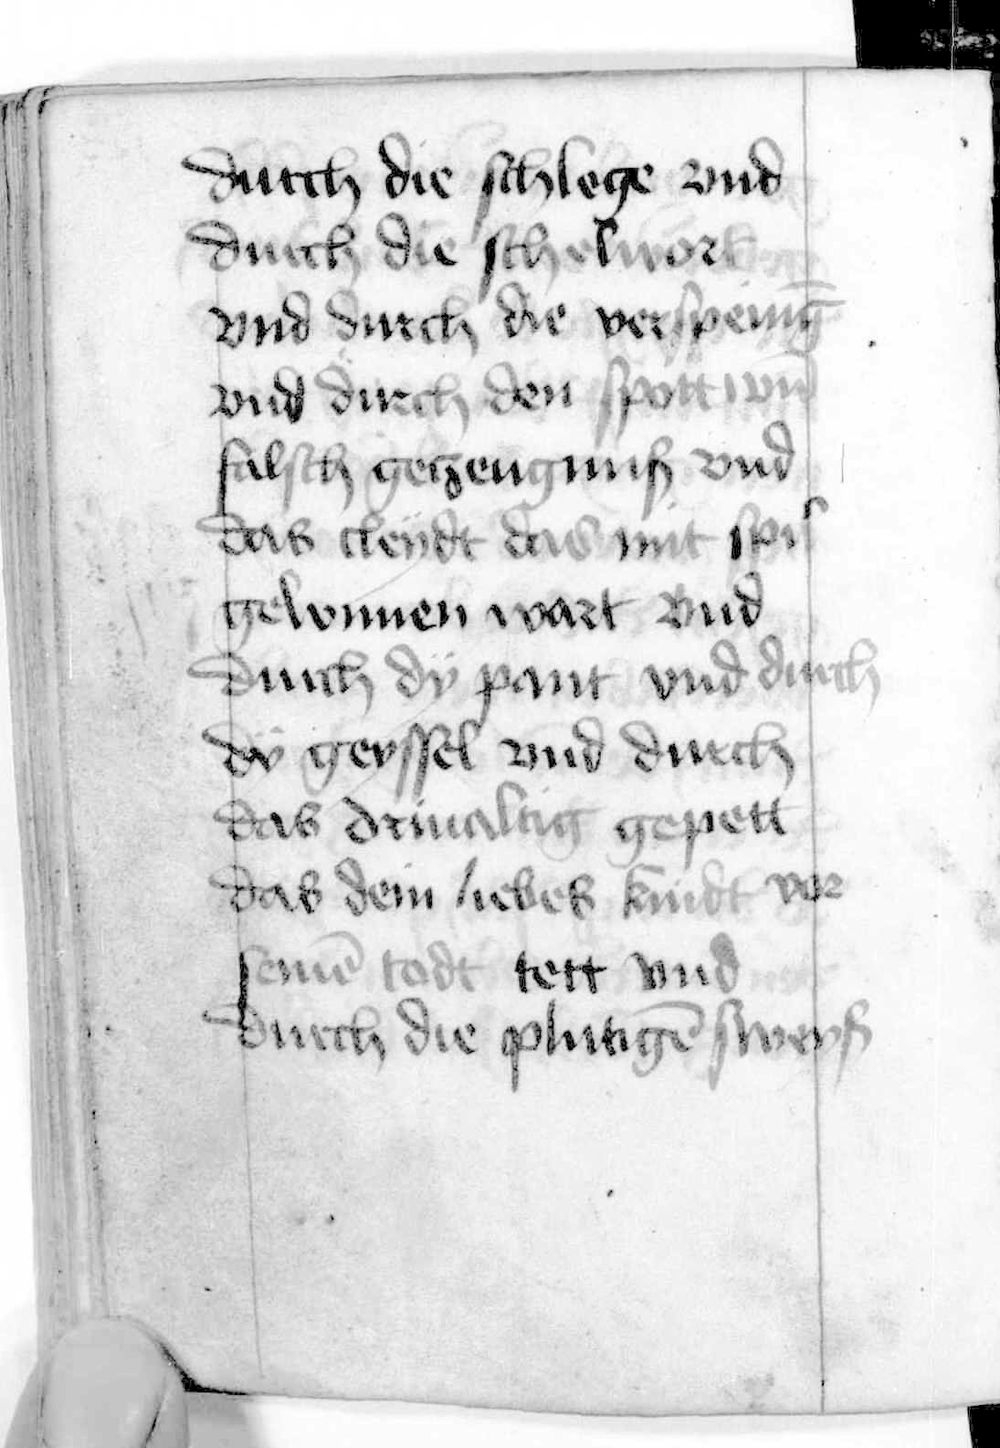 durch die schlege vnd
durch die schelwort
vnd durch die verspeiūg
vnd durch den spott vnd
falsch geczeugnuß vnd
das cleydt das mit spil
gelonnen wart vnd
durch dÿ pant vnd durch
dÿ geyssel vnd durch
das driualtig gepett
das dein liebes kindt vor
seinē todt tett vnd
durch die plutigē sweyß